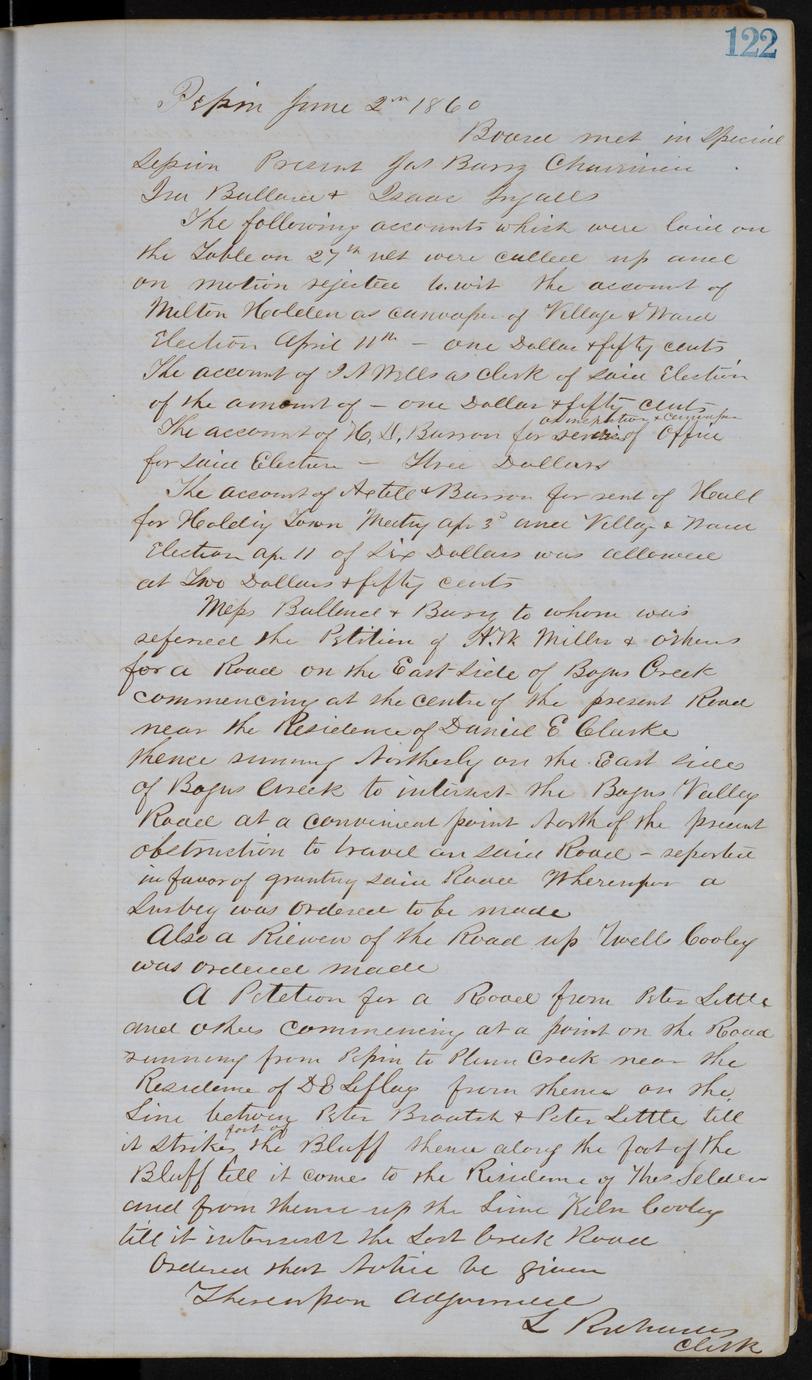 122
Pepin June 2nd 1860
Board met in Special
Session Present Jas Barry Chairman
Ira Ballard & Isaac Ingalls
The following accounts which were laid on
the Table on 27th ult were called up and
on motion rejected to wit the account of
Milton Holden as canvaser of Village & Ward
Election April 11th - one Dollar & fifty cents
The account of J A Wells as clerk of said Election
of the amount of - one Dollar & fifty cents
as inspector & canvaser
The account of H. D. Barron for of Office
for said Election - Three Dollars
The account of Axtell & Barron for rent of Hall
for Holding Town Meeting Apr 3d and Village & Ward
Election Apr 11 of Six Dollars was allowed
at Two Dollars & fifty cents
Messrs Ballard & Barry to whom was
refered the Petition of Miller & others
for a Road on the East side of Bogus Creek
commencing at the centre of the present Road
near the Residence of Daniel E Clarke
thence running Northerly on the East side
of Bogus Creek to intersect the Bogus Valley
Road at a convenient point North of the present
obstruction to travel on said Road - reported
in favor of granting said Road Whereupon a
Survey was ordered to be made
Also a Riewew of the Road up Cooley
was ordered made
A Petetion for a Road from Peter Little
and others commencing at a point on the Road
running from Pepin to Plum Creek near the
Residence of D E from thence on the
Line between Peter Braatch & Peter Little till
foot of
it strikes the Bluff thence along the foot of the
Bluff till it comes to the Residence of Thos Selden
and from thence up the Lime Kiln Cooley
till it intersect the Lost Creek Road
Ordered that Notice be given
Thereupon adjourned
L Richards
Clerk